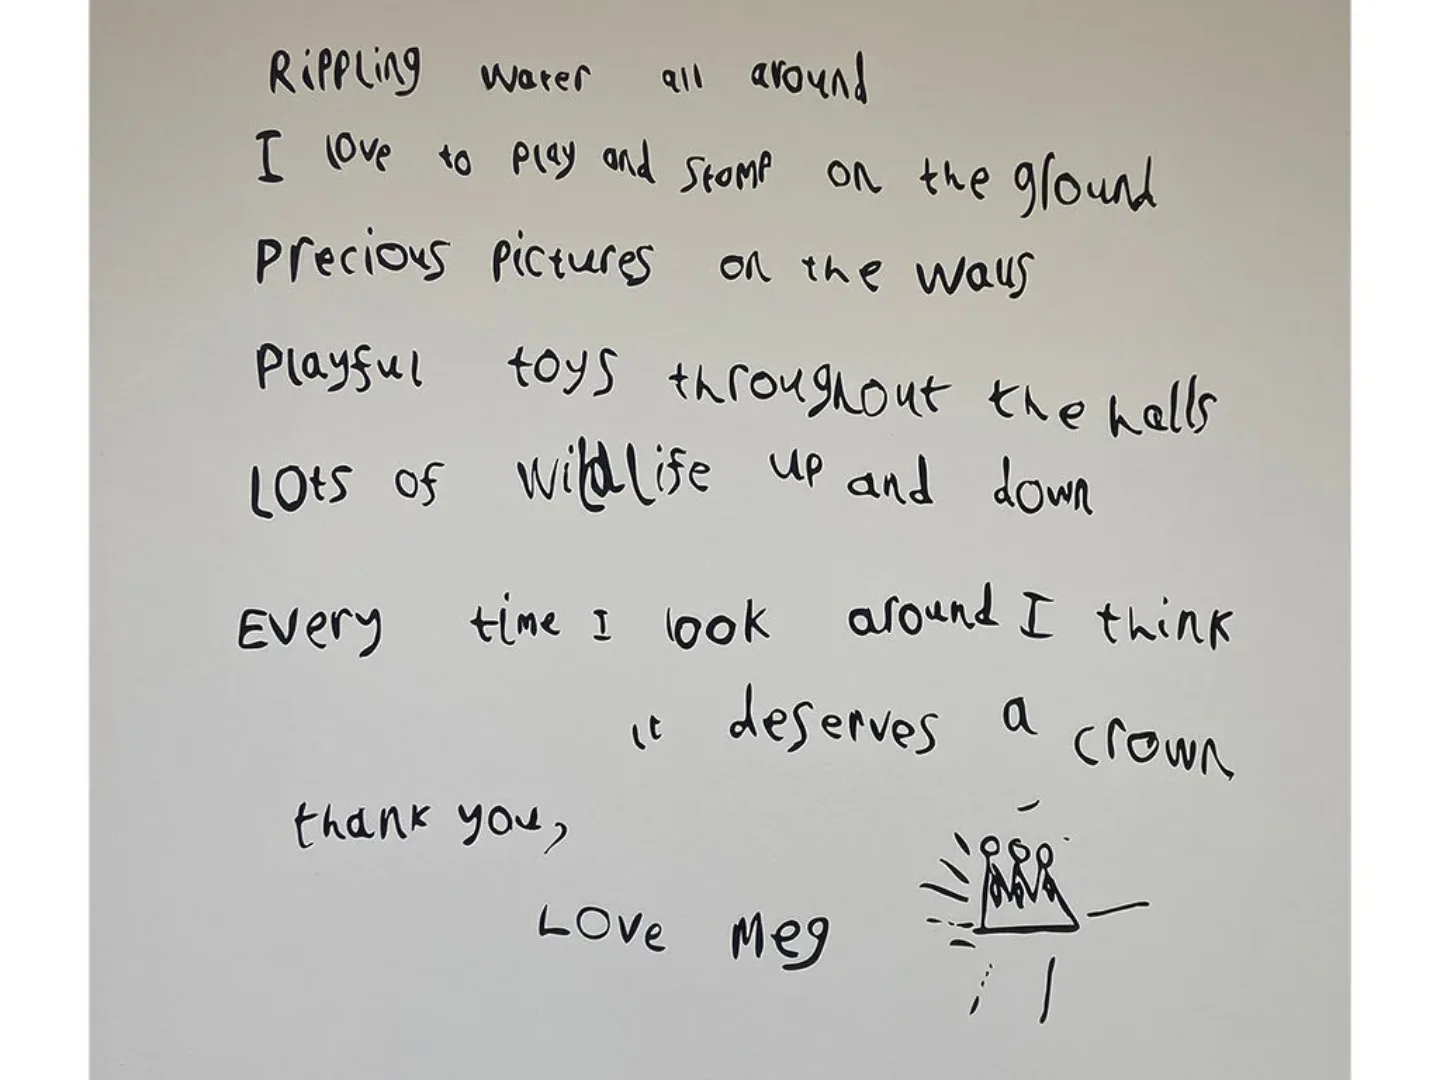 Rippling water all around
I love to play and stomp on the ground
Precious pictures on the walls
Playful toys throughout the halls
Lots of wildlife up and down
Every time I look around I think
it deserves a crown
thank you,
Love Meg